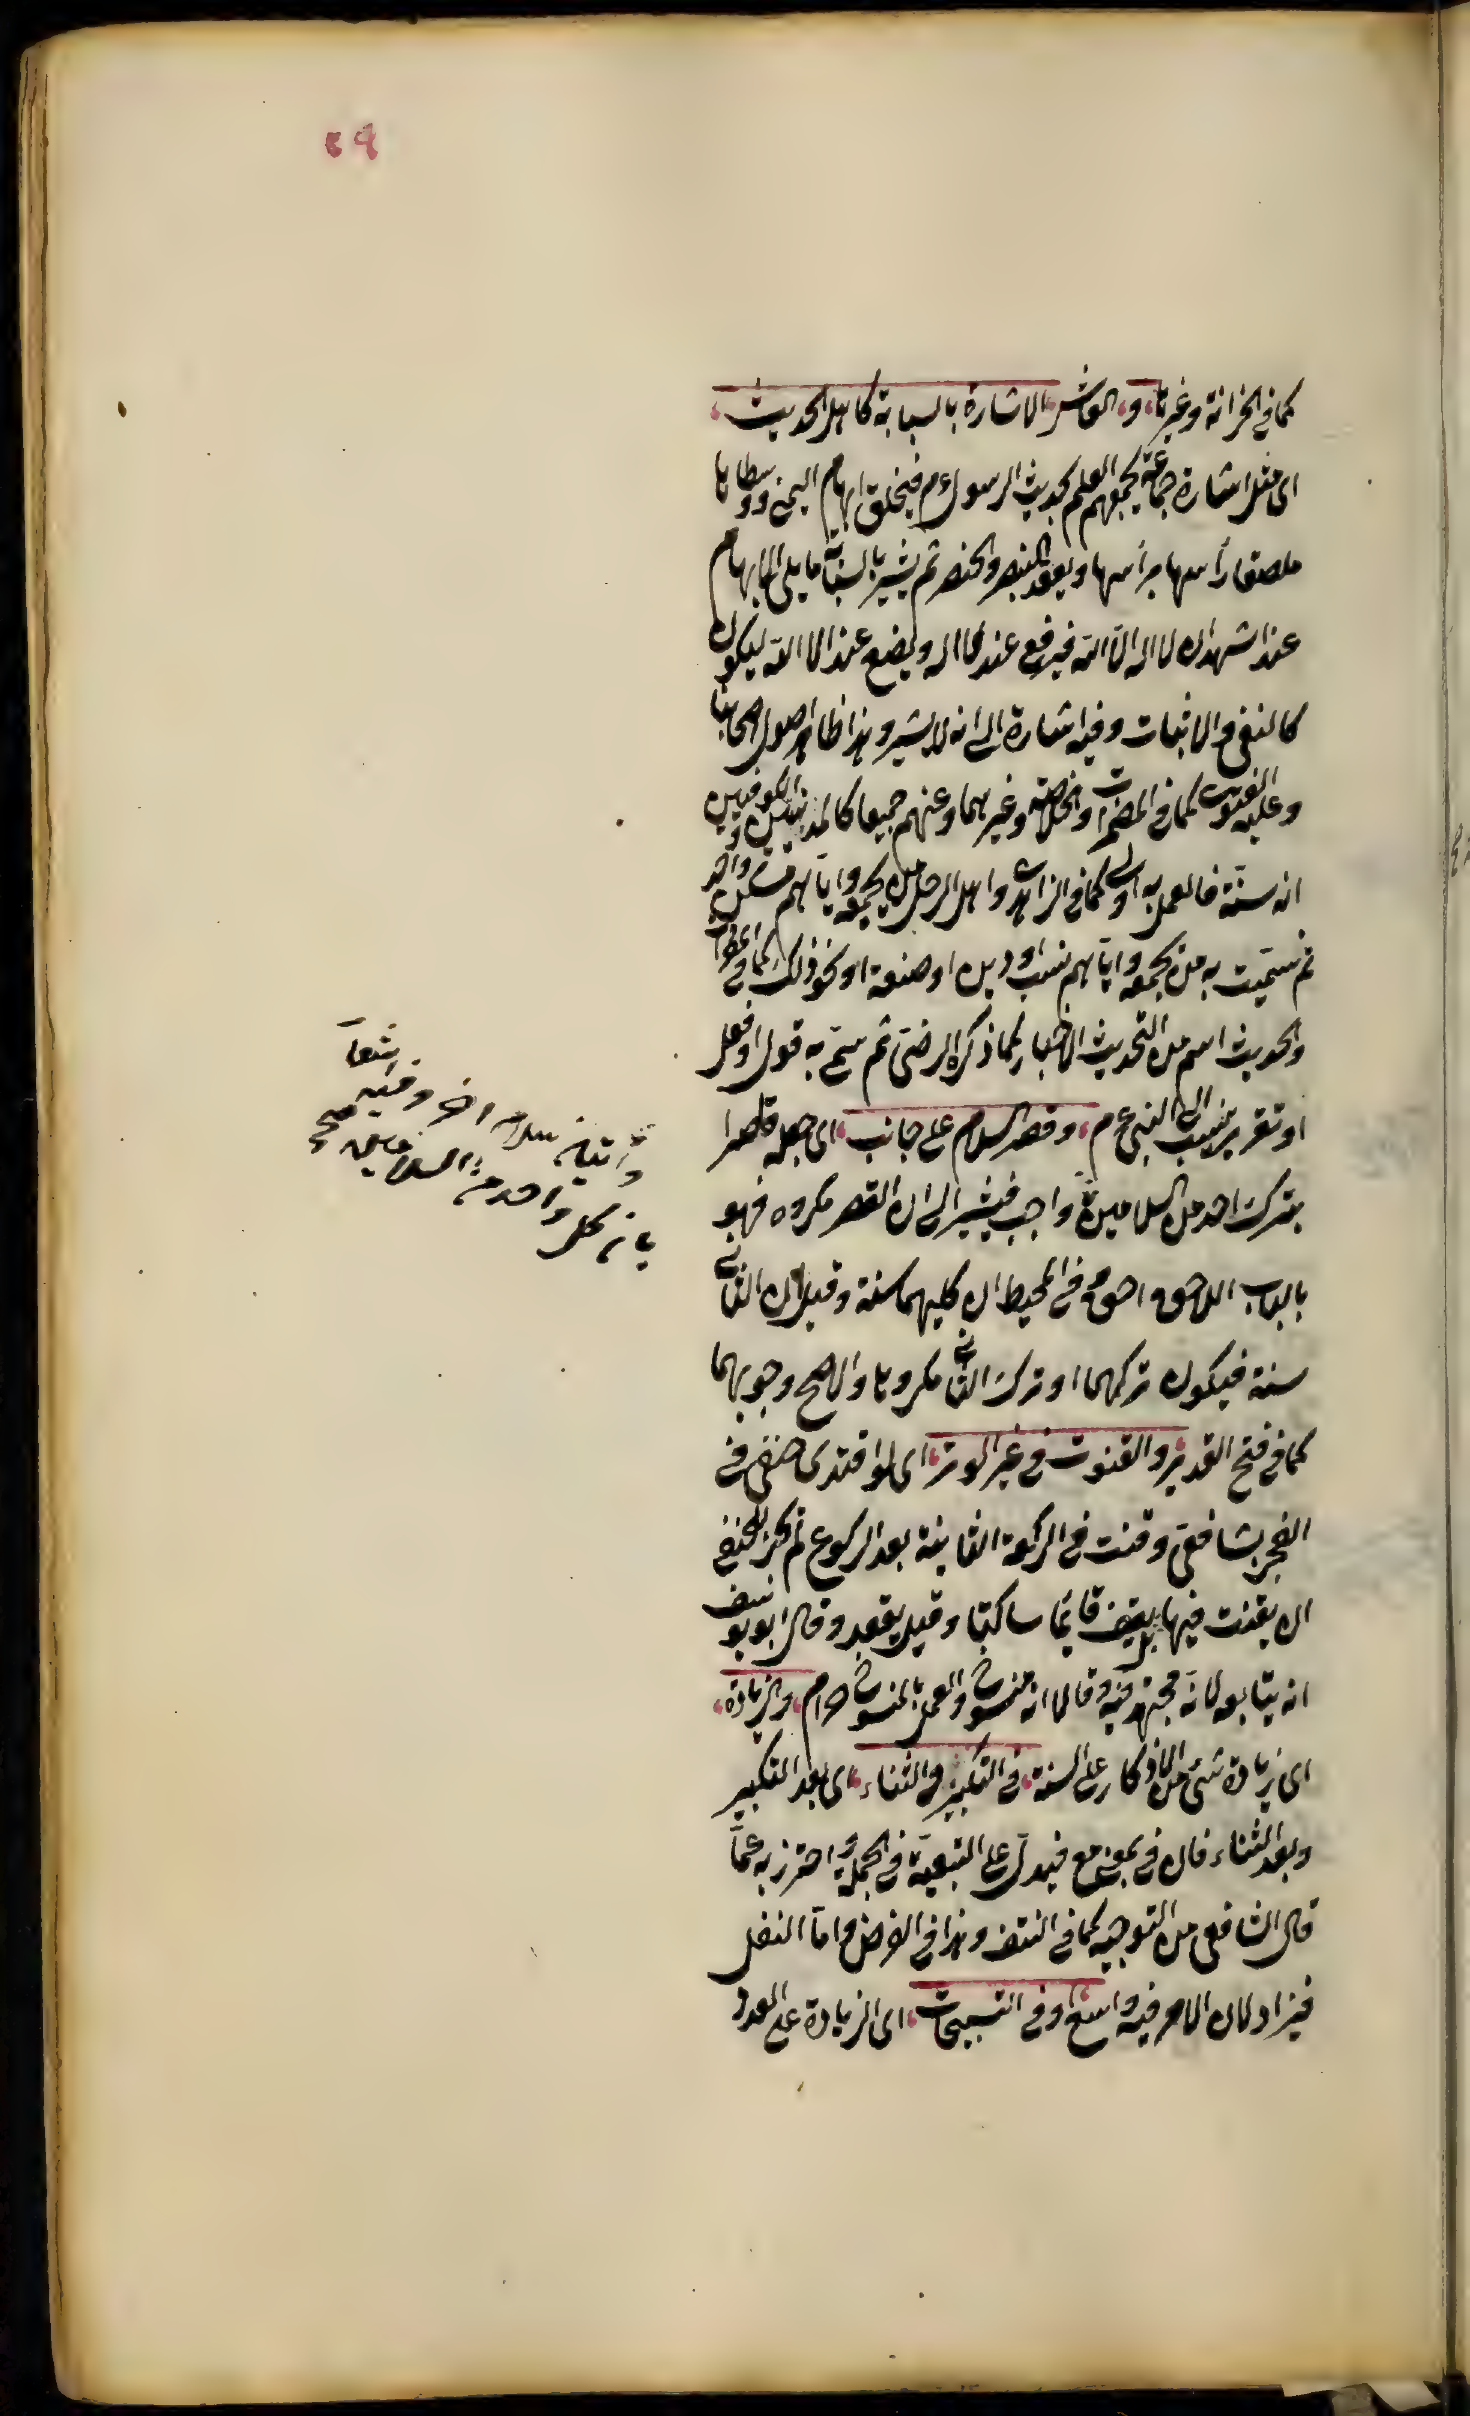 كما في الخزانة وغيرها و العاشر الاشارة بالسبابة كاهل الحديث
اى مثل اشارة جماعة يجمعهم العلم بحديث الرسول عم فيحلق ابهام اليمنى ووسطاها
ملصقا رأسها برأسها ويعقد البنصر والخنصر ثم يشير بالسبابة ما يلى الابهام
عند اشهد ان لا اله الا الله فيرفع عند لا اله ويضع عند الا الله ليكون
كالنفى والاثبات وفيه اشارة الى انه لا يشير وهذا ظاهر اصول اصحابنا
وعليه الفتوى كما في المضمرات والخلاصة وغيرهما وعنهم جميعا كالمدنيين والكوفيين
انه سنة فالعمل به اولى كما في الزاهدى واهل الرجل من يجمعه واياهم مسكن واحد
ثم سميت به من يجمعه واياهم نسب او دين او صنعة او نحو ذلك كما في المفردات
والحديث اسم من التحديث الاخبار كما ذكره الرضى ثم سمى به قول او فعل
او تقرير ينسب الى النبى عم وقصر السلام على جانب اى جعله قاصرا
بترك احد من السلامين واجب فيشير الى ان القصر مكروه فهو
بالباب اللاحق احق وفي المحيط ان كليهما سنة وقيل ان الثانى
سنة فيكون تركهما او ترك الثانى مكروها والاصح وجوبهما
كما في فتح القدير والقنوت في غير الوتر اى لو اقتدى حنفى في
الفجر بشافعى وقنت في الركعة الثانية بعد الركوع ثم يكره للحنفى
ان يقنت فيها بل يقف قائما ساكتا وقيل يقعد وقال ابو يوسف
انه يتابعه لانه مجتهد فيه وقالا انه منسوخ والعمل بالمنسوخ حرام والزيادة
اى زيادة شئ من الاذكار على السنة في التكبير والثناء اى بعد التكبير
وبعد الثناء فان في بمعنى مع فيدل على التبعية في الجملة واحترز به عما
قال الشافعى من التوجيه كما في النتف وهذا في الفرض واما النفل
فيزاد لان الامر فيه واسع وفي التسبيحات اى الزيادة على العدد
سلام اخر وفيه اشعار
بان كل واحد من السلامين